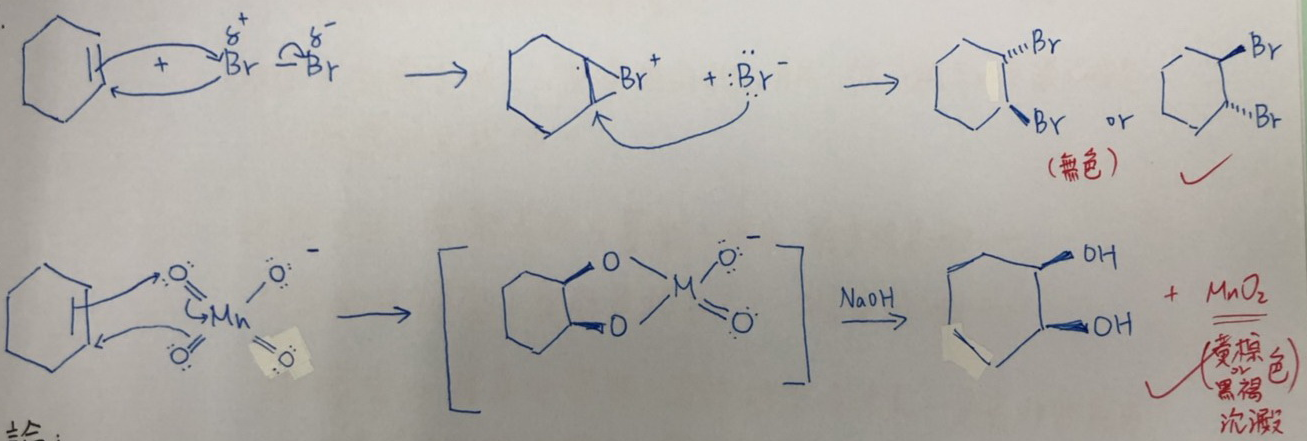 δ⁺ δ⁻
+ Br – Br → Br⁺ + :Br⁻ → Br Br or Br Br
(無色) ✓
O O⁻ Mn O O → [ O O M O⁻ O ] NaOH → OH OH + MnO₂
✓ (黃棕 or 黑褐 色)
沉澱
論: